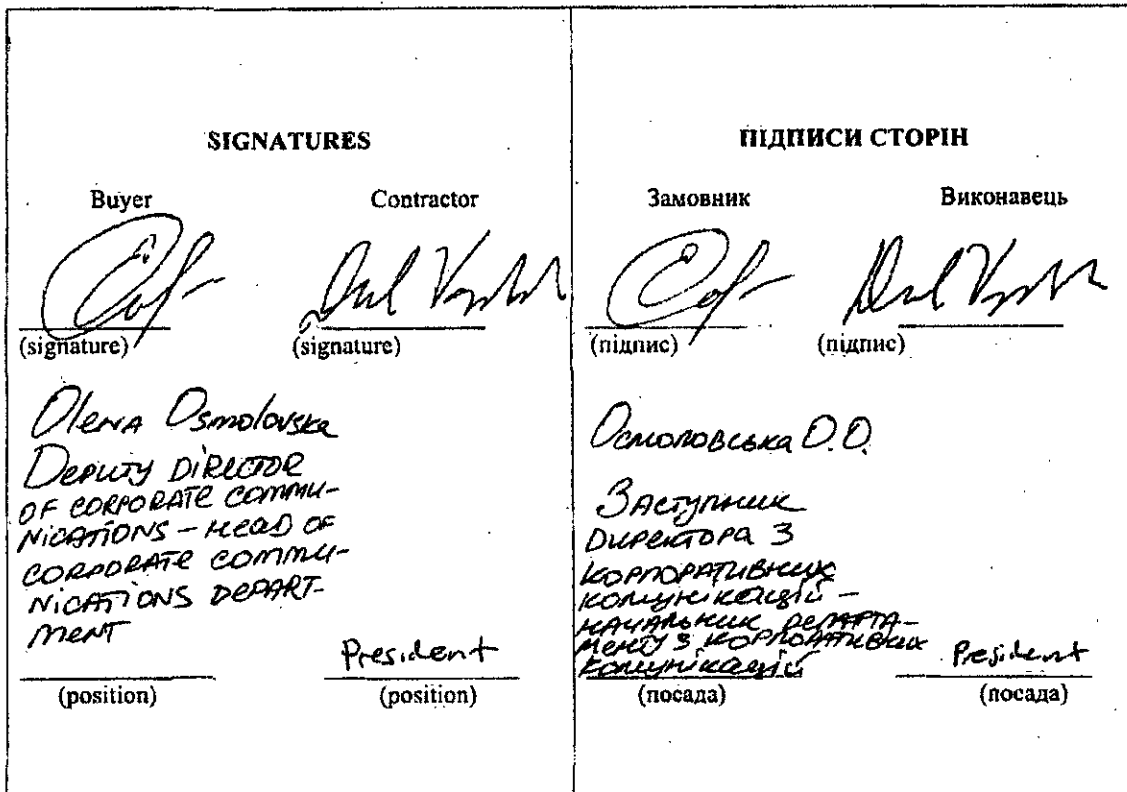 SIGNATURES
Buyer
Contractor
(signature)
(signature)
Olena Osmolovska
Deputy Director
of corporate commu-
nications – Head of
corporate commu-
nications depart-
ment
President
(position)
(position)
ПІДПИСИ СТОРІН
Замовник
Виконавець
(підпис)
(підпис)
Осмоловська О.О.
Заступник
директора з
корпоративних
комунікацій –
начальник департа-
менту з корпоративних
комунікацій
President
(посада)
(посада)